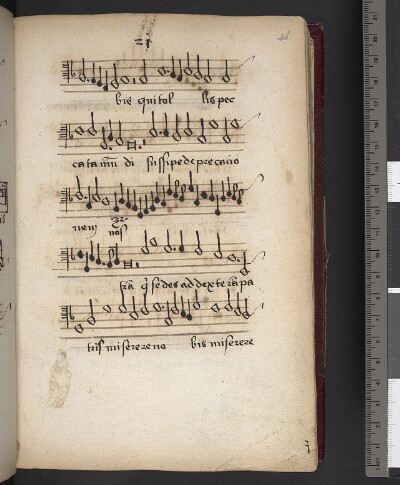 46
bis qui tol lis pec
ca ta mũ di sussipe deprecacio
nem nos
r̃a q̃ sedes ad dextera pa
tris miserere no bis miserere